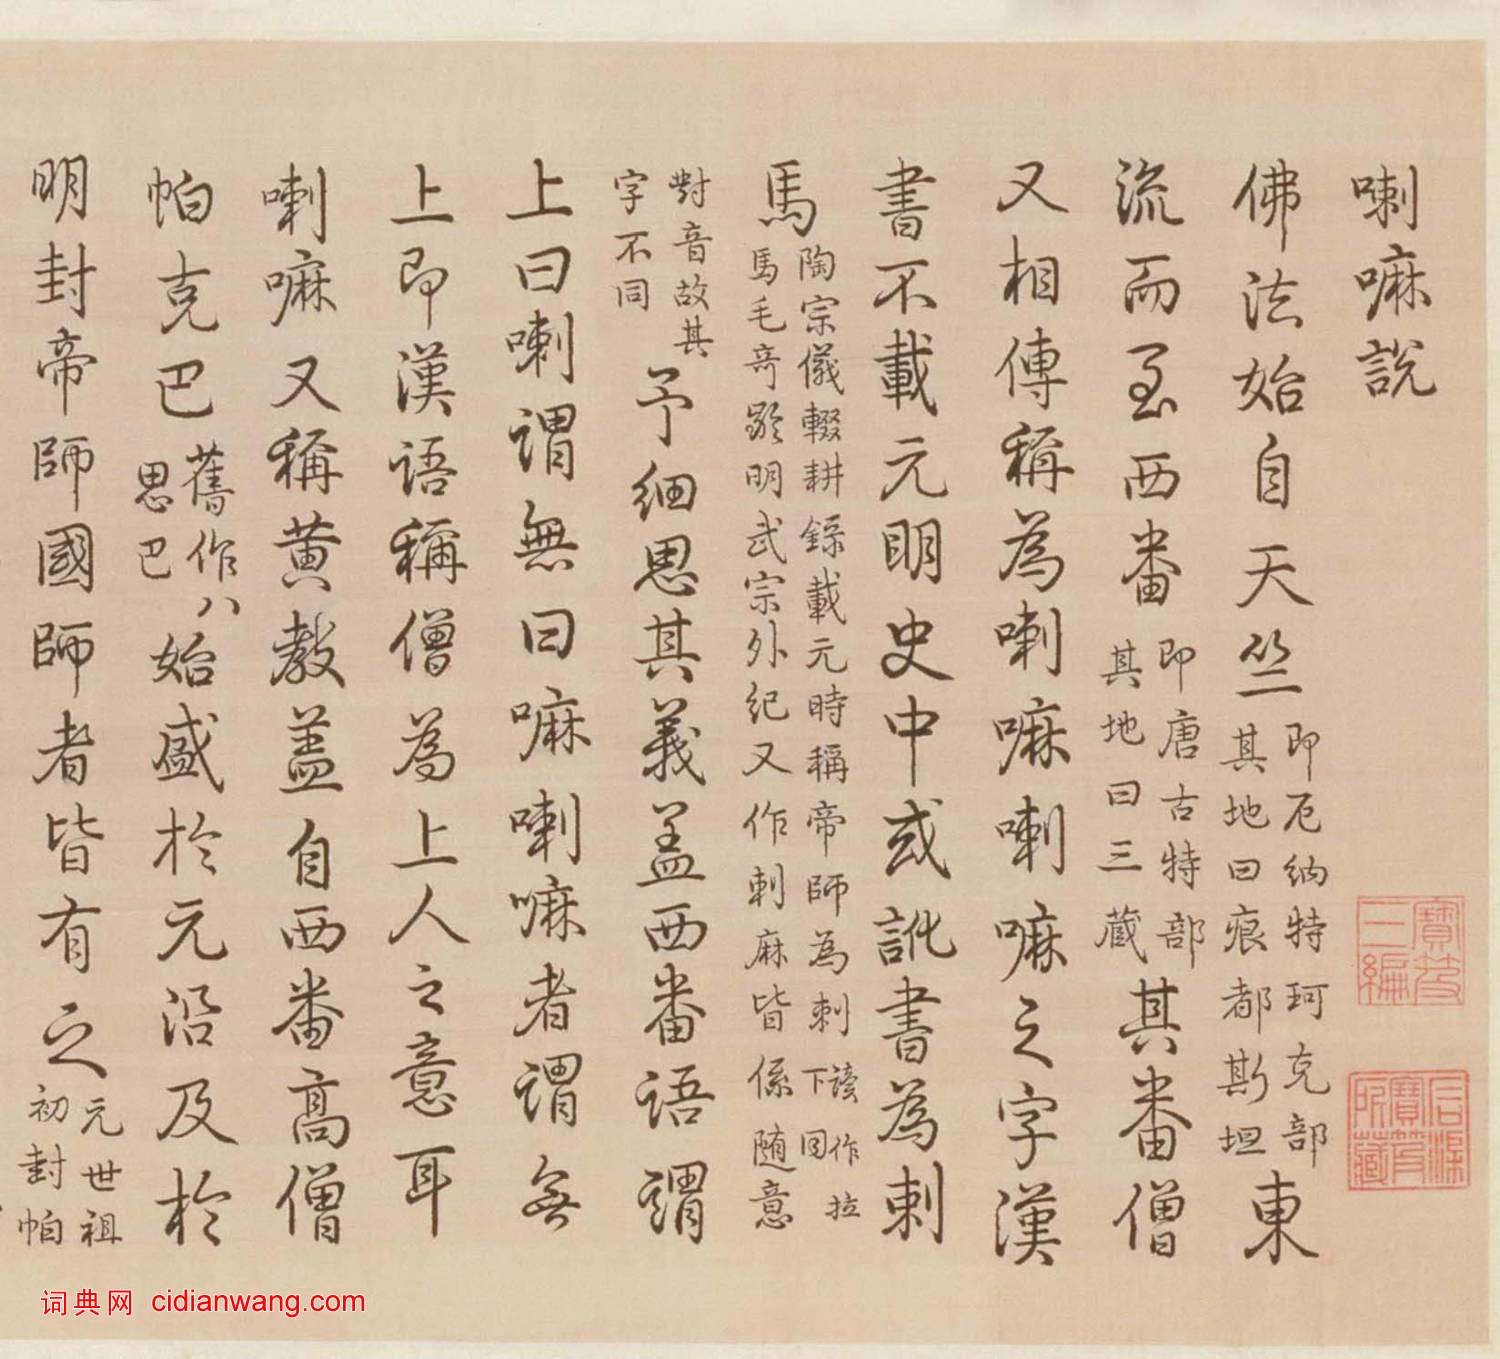 喇嘛說
佛法始自天竺即厄納特珂克部其地曰痕都斯坦東
流而至西番即唐古特部其地曰三藏其番僧
又相傳稱為喇嘛喇嘛之字漢
書不載元明史中或訛書為剌
馬陶宗儀輟耕錄載元時稱帝師為剌讀作拉下同馬毛奇齡明武宗外紀又作剌麻皆係隨意
對音故其字不同予細思其義蓋西番語謂
上曰喇謂無曰嘛喇嘛者謂無
上即漢語稱僧為上人之意耳
喇嘛又稱黃教蓋自西番高僧
帕克巴舊作八思巴始盛於元沿及於
明封帝師國師者皆有之元世祖初封帕
寶笈三編
石渠寶笈所藏
词典网 cidianwang.com